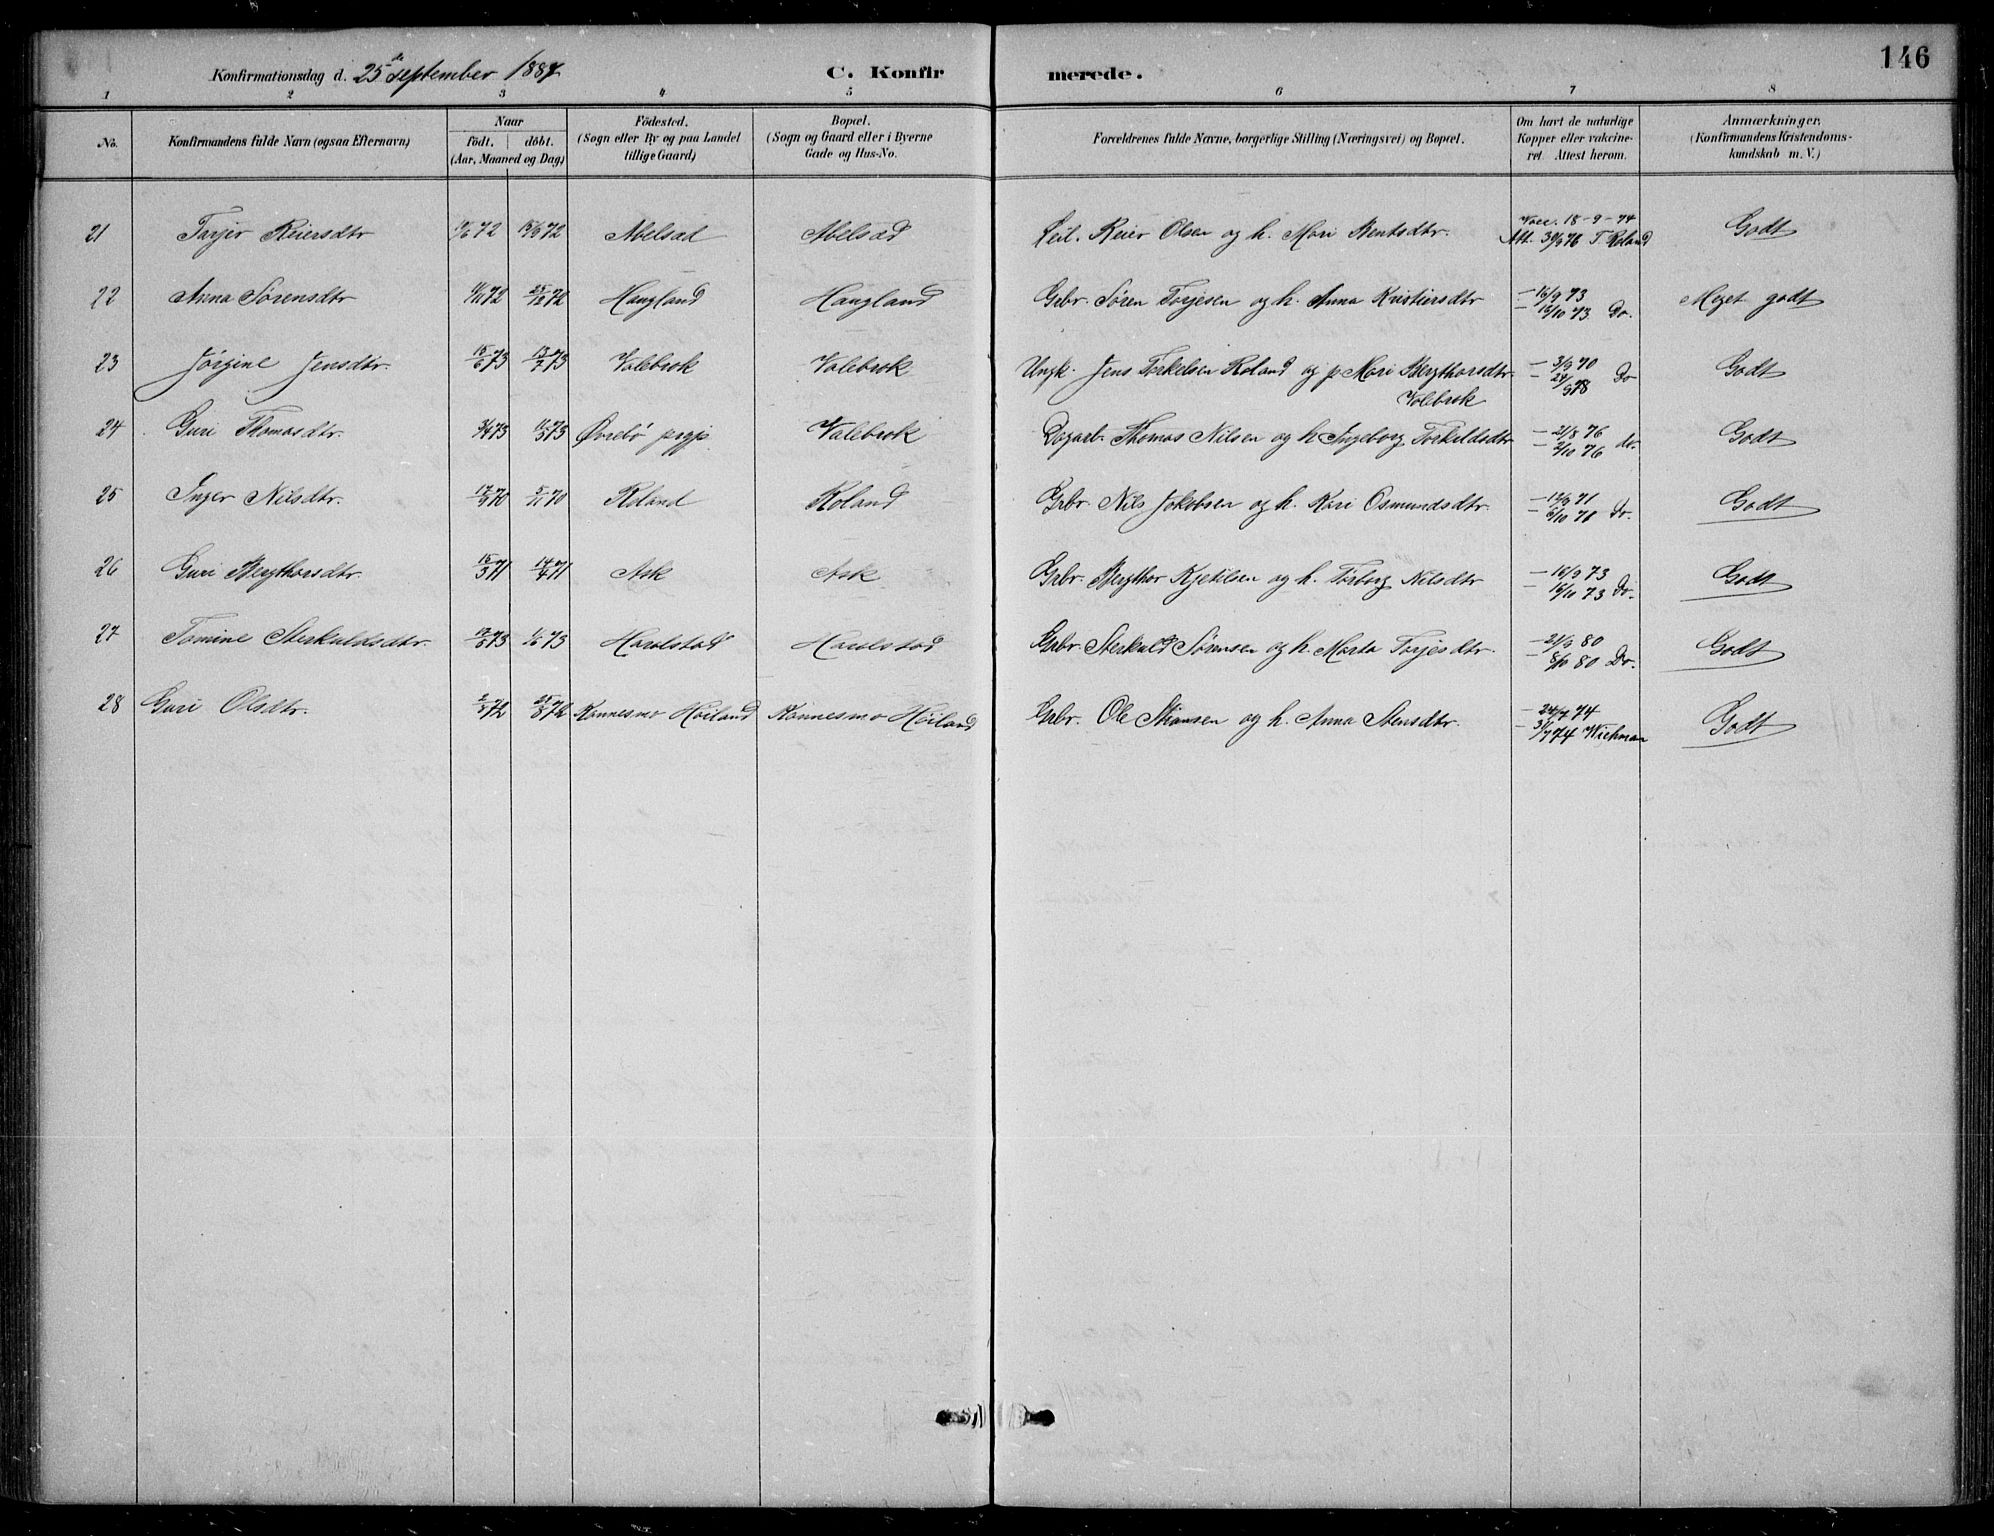 146
Konfirmationsdag d. 25de September 1887 C. Konfirmerede.
1 2 3 4 5 6 7 8
No. Konfirmandens fulde Navn (ogsaa Efternavn) Naar født. døbt. (Aar, Maaned og Dag) Fødested. (Sogn eller By og paa Landet tillige Gaard) Bopæl. (Sogn og Gaard eller i Byerne Gade og Hus-No. Forældrenes fulde Navne, borgerlige Stilling (Næringsvei) og Bopæl. Om havt de naturlige Kopper eller vakcineret Attest herom. Anmærkninger. (Konfirmandens Kristendomskundskab m. V.)
21 Tarjer Reiersdtr 72 72 Abelsæd Abelsæd Leil. Reier Olsen og h. Mari Bentsdtr. Vacc. 18-9-74 Att. 30/9 76 T. Roland Godt
22 Anna Sørensdtr 72 25/12 72 Haugland Haugland Gbr. Søren Torjesen og h. Anna Kristiersdtr — 16/9 73 — 16/10 73 Do. Meget godt
23 Jørgine Jensdtr. 15/6 73 13/7 73 Valebrok Valebrok Ungk. Jens Torkelsen Roland og p. Mari Bergthorsdtr Valebrok — 3/9 70 — 24/9 78 Do Godt
24 Guri Thomasdtr. 73 73 Øvrebø prgjp. Valebrok Dagarb. Thomas Nilsen og h. Ingeborg Torkildsdtr — 21/8 76 — 2/10 76 do. Godt
25 Inger Nilsdtr. 17/9 70 5/11 70 Roland Roland Gbr. Nils Jakobsen og h. Kari Osmundsdtr. — 12/9 71 — 6/10 71 Do. Godt
26 Guri Bergthorsdtr. 15/3 71 14/4 71 Ask Ask Gbr. Bergthor Kjetilsen og h. Torborg Nilsdtr — 16/9 73 — 16/10 73 Do. Godt
27 Tomine Sterkuldsdtr. 73 1/6 73 Haralstad Haralstad Gbr. Sterkuld Sørensen og h. Marta Torjesdtr. — 21/9 80 — 8/10 80 Do. Godt
28 Guri Olsdtr. 72 25/8 72 Konnesmo Høiland Konnesmo Høiland Gbr. Ole Stiansen og h. Anna Stensdtr. — 24/7 74 — 31/7 74 Wichman Godt